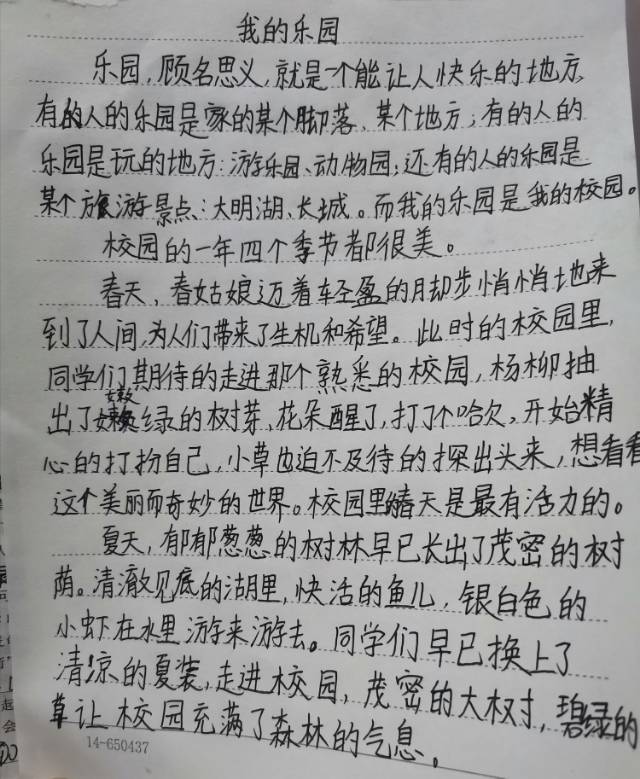 我的乐园
乐园,顾名思义,就是一个能让人快乐的地方,
有的人的乐园是家的某个脚落,某个地方;有的人的
乐园是玩的地方:游乐园、动物园;还有的人的乐园是
某个旅游景点:大明湖、长城。而我的乐园是我的校园。
校园的一年四个季节都很美。
春天,春姑娘迈着轻盈的脚步悄悄地来
到了人间,为人们带来了生机和希望。此时的校园里,
同学们期待的走进那个熟悉的校园,杨柳抽
出了嫩绿的树芽,花朵醒了,打了个哈欠,开始精
心的打扮自己,小草也迫不及待的探出头来,想看看
这个美丽而奇妙的世界。校园里的春天是最有活力的。
夏天,郁郁葱葱的树林早已长出了茂密的树
荫。清澈见底的湖里,快活的鱼儿,银白色的
小虾在水里游来游去。同学们早已换上了
清凉的夏装,走进校园,茂密的大树,碧绿的
草让校园充满了森林的气息。
14-650437